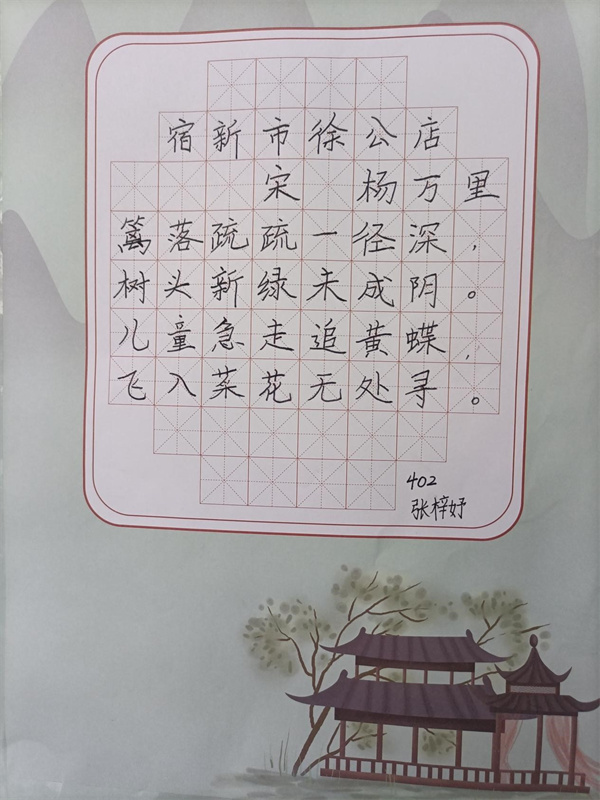 宿新市徐公店
宋 杨万里
篱落疏疏一径深，
树头新绿未成阴。
儿童急走追黄蝶，
飞入菜花无处寻。
402
张梓妤